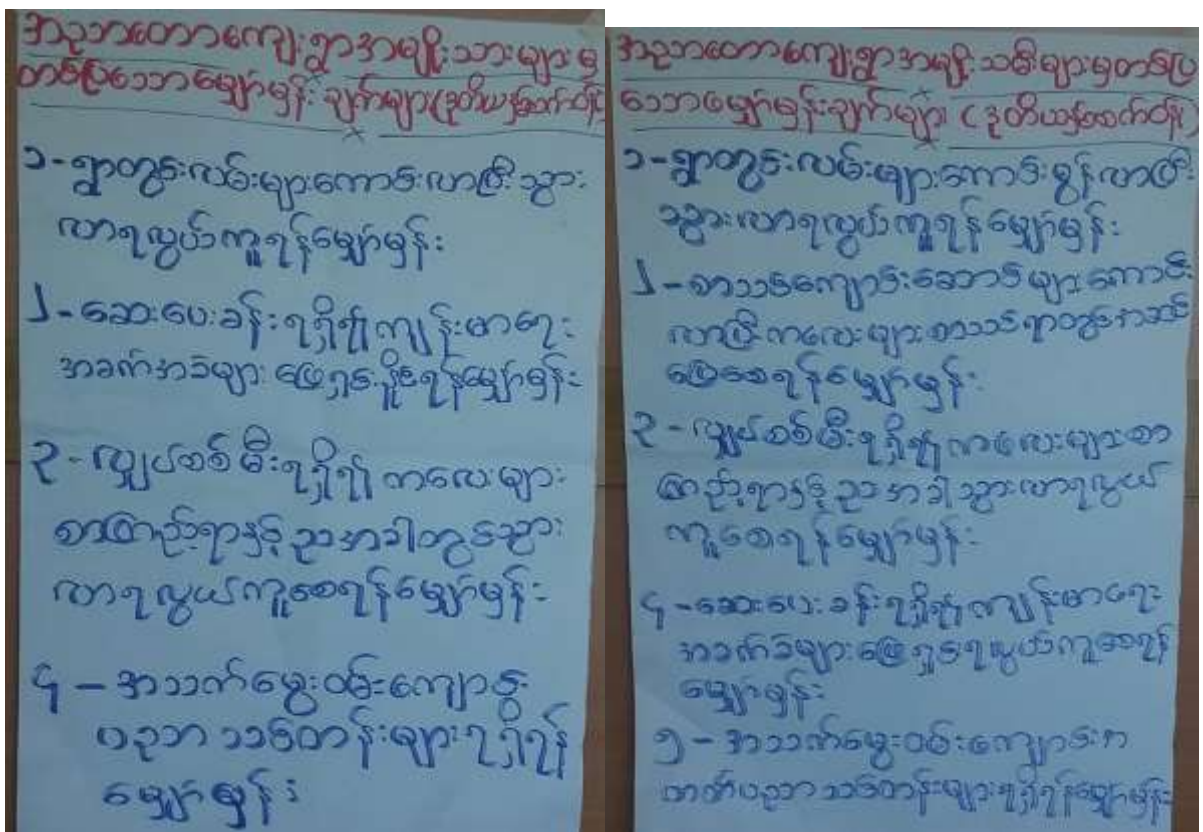 အညာတောကျေးရွာအမျိုးသားများမှ
တစ်ပြသောမျှော်မှန်းချက်များ(ဒုတိယနှစ်ဝက်
၁-ရွာတွင်းလမ်းများကောင်းလာပြီးသွား
လာရလွယ်ကူရန်မျှော်မှန်း
၂-ဆေးပေးခန်းရရှိ၍ကျန်းမာရေး
အခက်အခဲများဖြေရှင်းနိုင်ရန်မျှော်မှန်း
၃-လျှပ်စစ်မီးရရှိ၍ကလေးများ
စာကြည့်ရာနှင့်ညအခါတွင်သွား
လာရလွယ်ကူစေရန်မျှော်မှန်း
၄-အသက်မွေးဝမ်းကျောင်း
ပညာသင်တန်းများရရှိရန်
မျှော်မှန်း
အမျိုးသမီးများမှတစ်ပြ
သောမျှော်မှန်းချက်များ
၁-ရွာတွင်းလမ်းများကောင်းမွန်လာပြီး
သွားလာရလွယ်ကူရန်မျှော်မှန်း
၂-စာသင်ကျောင်းဆောင်များကောင်း
လာပြီးကလေးများစာသင်ရာတွင်အဆင်
ပြေစေရန်မျှော်မှန်း
၃-လျှပ်စစ်မီးရရှိ၍ကလေးများစာ
ကြည့်ရာနှင့်ညအခါသွားလာရလွယ်
ကူစေရန်မျှော်မှန်း
၄-ဆေးပေးခန်းရရှိ၍ကျန်းမာရေး
အခက်ခဲများဖြေရှင်းရလွယ်ကူစေရန်
မျှော်မှန်း
၅-အသက်မွေးဝမ်းကျောင်းအ
တတ်ပညာသင်တန်းများရရှိရန်မျှော်မှန်း